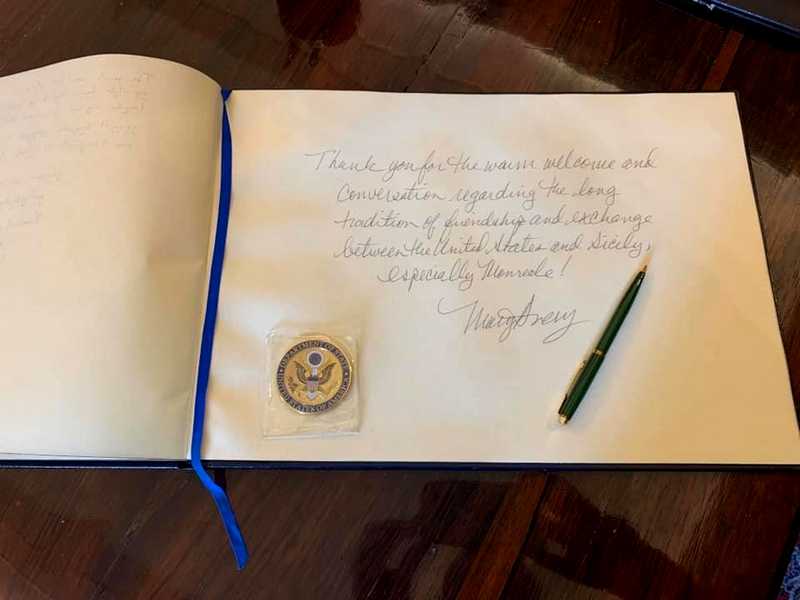 Thank you for the warm welcome and
Conversation regarding the long
tradition of friendship and exchange
between the United States and Sicily,
especially Monreale!
Mary Avery
DEPARTMENT OF STATE
UNITED STATES OF AMERICA